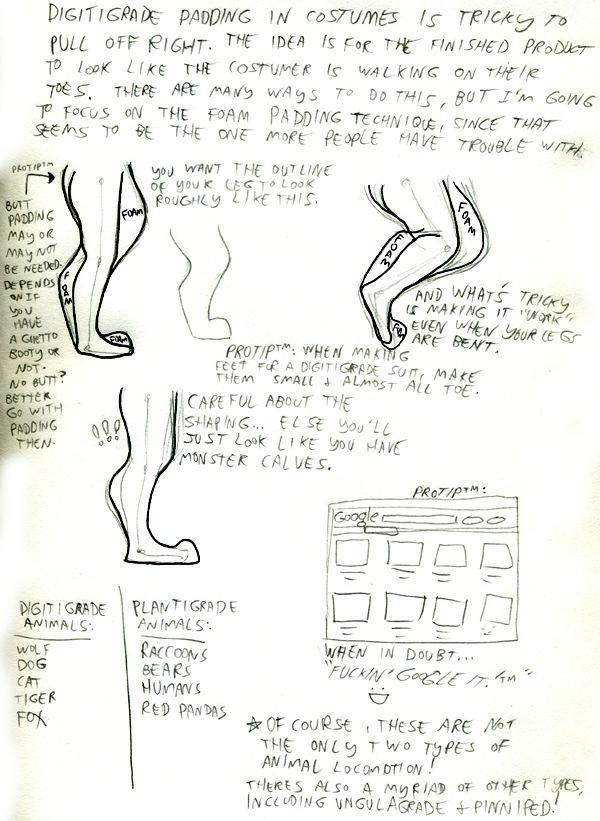 DIGITIGRADE PADDING IN COSTUMES IS TRICKY TO
PULL OFF RIGHT. THE IDEA IS FOR THE FINISHED PRODUCT
TO LOOK LIKE THE COSTUMER IS WALKING ON THEIR
TOES. THERE ARE MANY WAYS TO DO THIS, BUT I'M GOING
TO FOCUS ON THE FOAM PADDING TECHNIQUE, SINCE THAT
SEEMS TO BE THE ONE MORE PEOPLE HAVE TROUBLE WITH.
PROTIP™
BUTT
PADDING
MAY OR
MAY NOT
BE NEEDED.
DEPENDS
ON IF
YOU
HAVE
A GHETTO
BOOTY OR
NOT.
NO BUTT?
BETTER
GO WITH
PADDING
THEN.
FOAM
FOAM
FOAM
YOU WANT THE OUTLINE
OF YOUR LEG TO LOOK
ROUGHLY LIKE THIS.
FOAM
FOAM
FOAM
AND WHAT'S TRICKY
IS MAKING IT "WORK"
EVEN WHEN YOUR LEGS
ARE BENT.
PROTIP™: WHEN MAKING
FEET FOR A DIGITIGRADE SUIT, MAKE
THEM SMALL & ALMOST ALL TOE.
!!!
CAREFUL ABOUT THE
SHAPING... ELSE YOU'LL
JUST LOOK LIKE YOU HAVE
MONSTER CALVES.
PROTIP™:
Google
WHEN IN DOUBT...
"FUCKIN' GOOGLE IT.™"
DIGITIGRADE
ANIMALS:
WOLF
DOG
CAT
TIGER
FOX
PLANTIGRADE
ANIMALS:
RACCOONS
BEARS
HUMANS
RED PANDAS
☆ OF COURSE, THESE ARE NOT
THE ONLY TWO TYPES OF
ANIMAL LOCOMOTION!
THERES ALSO A MYRIAD OF OTHER TYPES,
INCLUDING UNGULAGRADE & PINNIPED!